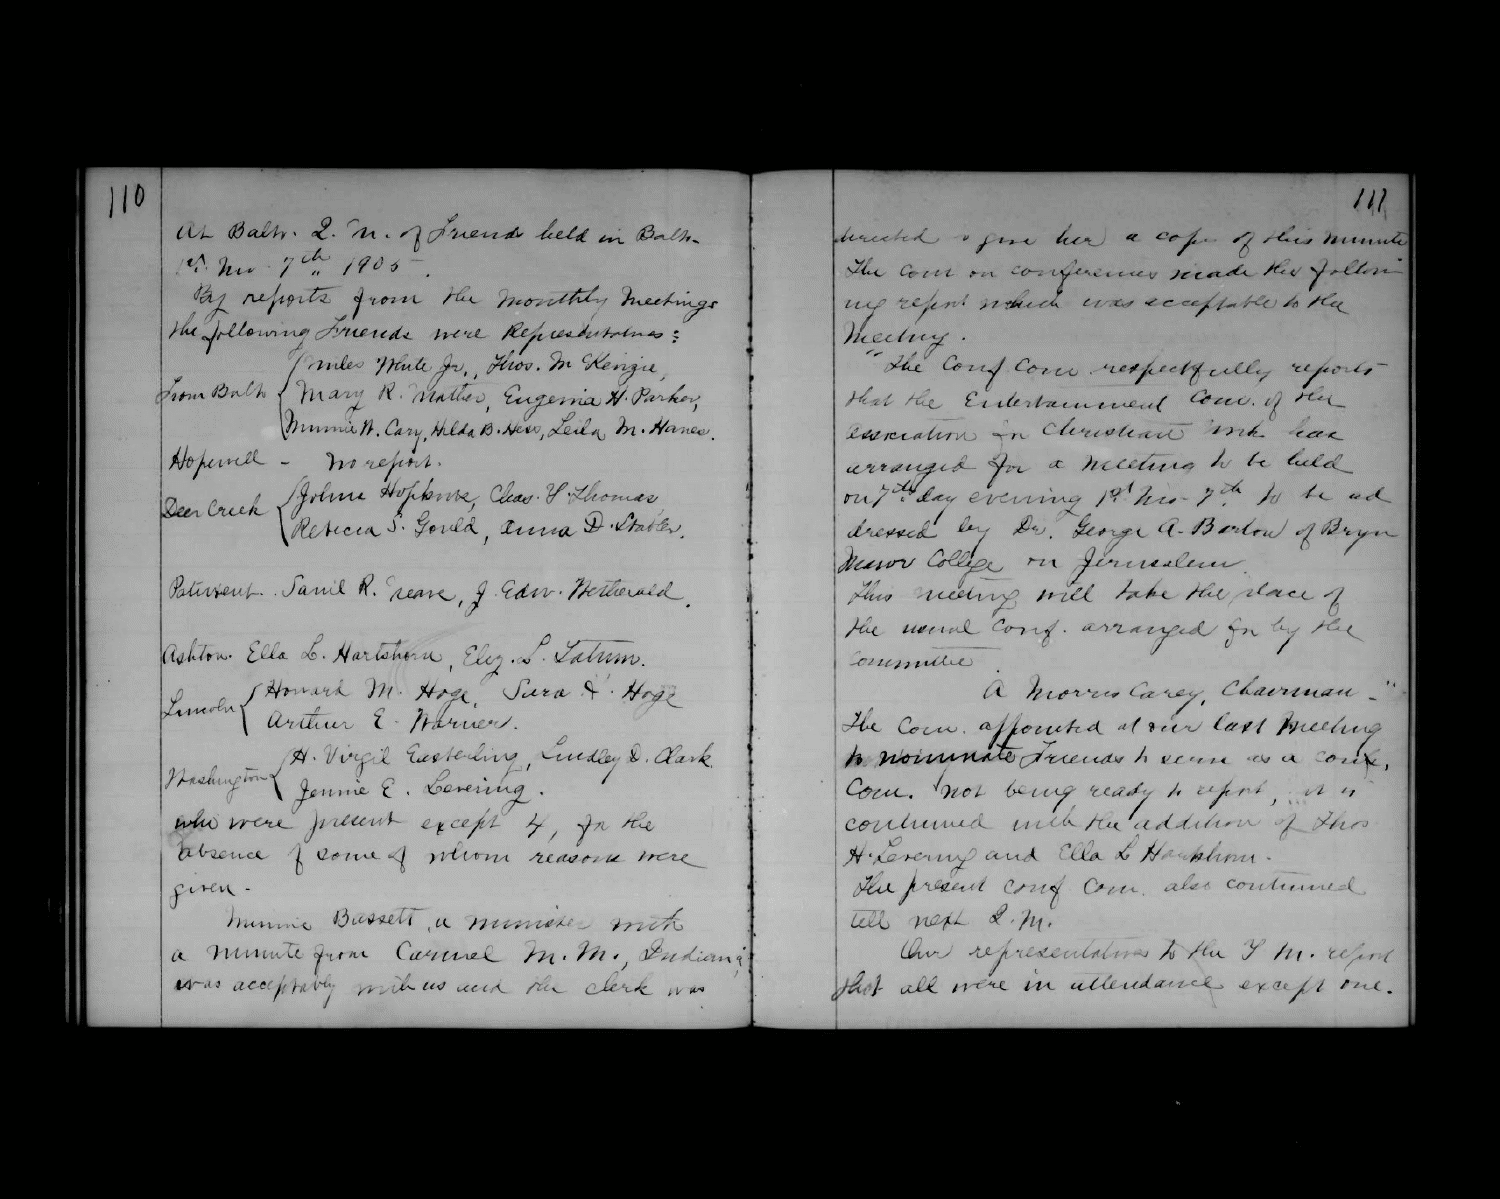 110
At Balto. Q. M. of Friends held in Balto.
1st. Mo. 7th, 1905.
By reports from the Monthly Meetings
the following Friends were Representatives:
From Balto { Miles White Jr., Thos. M Kenzie,
Mary R. Mather, Eugenia H. Parker,
Minnie W. Cary, Hilda B. Hess, Leila M. Hanes.
Hopewell - No report.
Deer Creek { Johns Hopkins, Chas. Y. Thomas
Rebecca S. Gould, Anna D. Stabler.
Patuxent. Saml R. , J. Edw. Wetherald.
Ashton. Ella L. Hartshorn, Eliz. L. Tatum.
Lincoln { Howard M. Hoge, Sara Hoge
Arthur E. Warner.
Washington { H. Virgil Easterling, Lindley D. Clark
Jennie E. Levering.
who were present except 4, for the
absence of some of whom reasons were
given.
Minnie Bassett, a minister with
a minute from Carmel M. M., Indiana,
was acceptably with us and the clerk was
111
directed to give her a copy of this minute
The Com on conferences made the followi
ng report which was acceptable to the
Meeting.
"The Conf Com respectfully reports
that the Entertainment Com. of the
association for Christian Work has
arranged for a meeting to be held
on 7th day evening 1st Mo. 7th. to be ad
dressed by Dr. George A. Barton of Bryn
Mawr College on Jerusalem.
This meeting will take the place of
the usual Conf. arranged for by the
committee.
A Morris Carey, Chairman."
The Com. appointed at our last Meeting
to nominate Friends to serve as a Conf.
Com. not being ready to report, it is
continued with the addition of Thos.
H. Levering and Ella L Hartshorn.
The present Conf Com. also continued
till next Q. M.
Our representatives to the Y M. report
that all were in attendance except one.